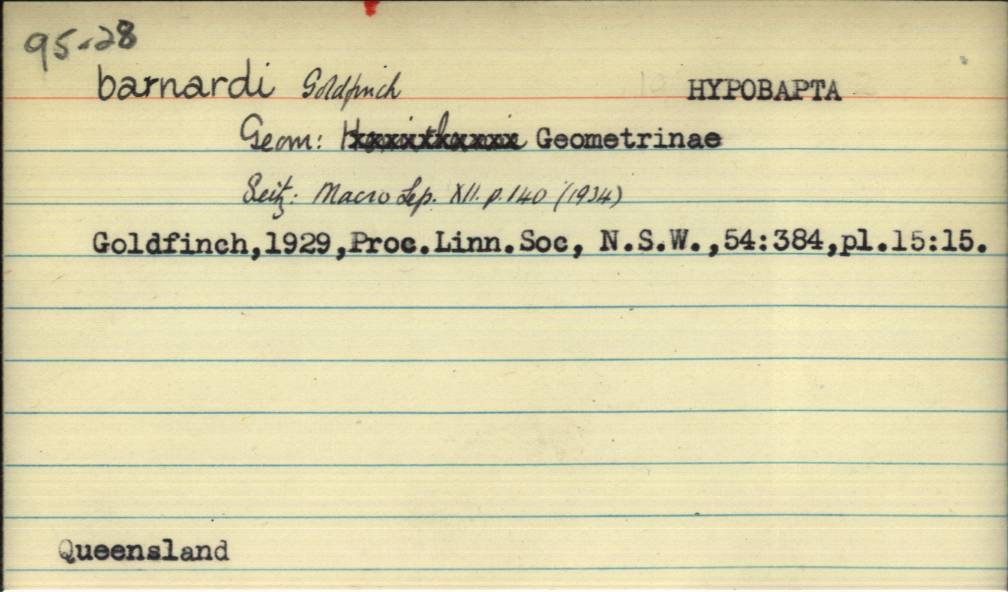 95-28
barnardi Goldfinch HYPOBAPTA
Geom: Geometrinae
Seitz: Macro Lep. XII. p.140 (1934)
Goldfinch,1929,Proc.Linn.Soc, N.S.W.,54:384,pl.15:15.
Queensland